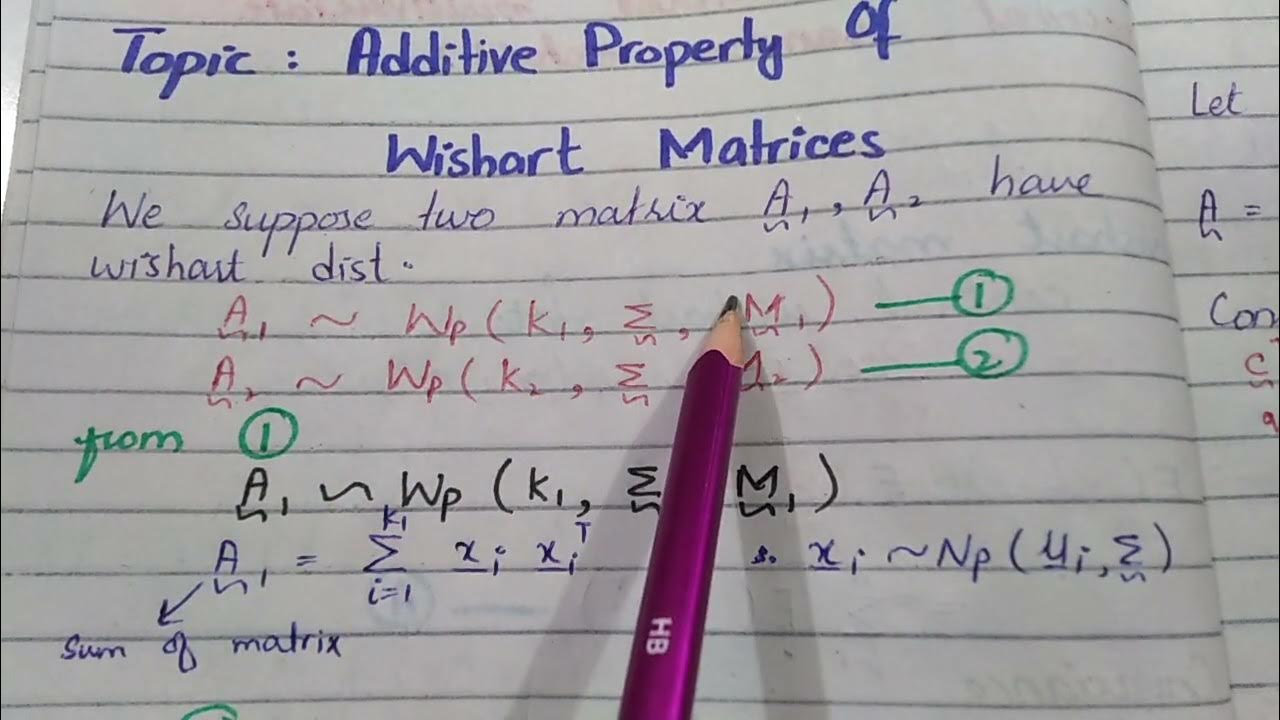 Topic: Additive Property Of
Wishart Matrices
We suppose two matrix A₁, A₂ have
wishart dist.
A₁ ~ Wp(k₁, Σ, M₁) — ①
A₂ ~ Wp(k₂, Σ ₂) — ②
from ①
A₁ ~ Wp (k₁, Σ M₁)
A₁ = Σᵢ₌₁ᵏ¹ xᵢ xᵢᵀ xᵢ ~ Np(μᵢ, Σ)
sum of matrix
HB
Let
A =
Con
c